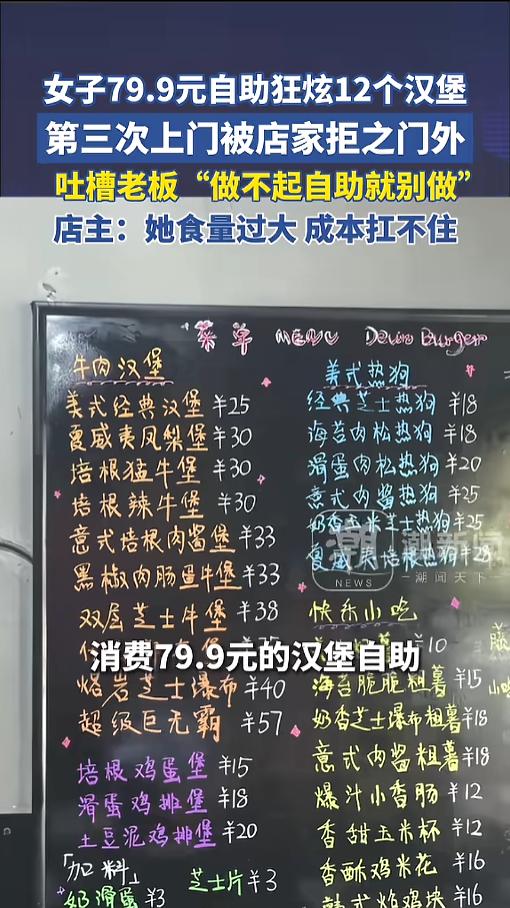 女子79.9元自助狂炫12个汉堡
第三次上门被店家拒之门外
吐槽老板“做不起自助就别做”
店主：她食量过大 成本扛不住
菜单 MENU Devin Burger
牛肉汉堡
美式经典汉堡 ¥25
夏威夷凤梨堡 ¥30
培根猛牛堡 ¥30
培根辣牛堡 ¥30
意式培根肉酱堡 ¥33
黑椒肉肠蛋牛堡 ¥33
双层芝士牛堡 ¥38
熔岩芝士瀑布 ¥40
超级巨无霸 ¥57
培根鸡蛋堡 ¥15
滑蛋鸡排堡 ¥18
土豆泥鸡排堡 ¥20
「加料」
奶滑蛋 ¥3 芝士片 ¥3
美式热狗
经典芝士热狗 ¥18
海苔肉松热狗 ¥18
滑蛋肉松热狗 ¥20
意式肉酱热狗 ¥25
奶香玉米芝士热狗 ¥25
夏威夷培根热狗 ¥28
快乐小吃
¥10
海苔脆脆粗薯 ¥15
奶香芝士瀑布粗薯 ¥18
意式肉酱粗薯 ¥18
爆汁小香肠 ¥12
香甜玉米杯 ¥12
香酥鸡米花 ¥16
韩式炸鸡块 ¥16
潮 潮新闻
NEWS 潮闻天下
消费79.9元的汉堡自助